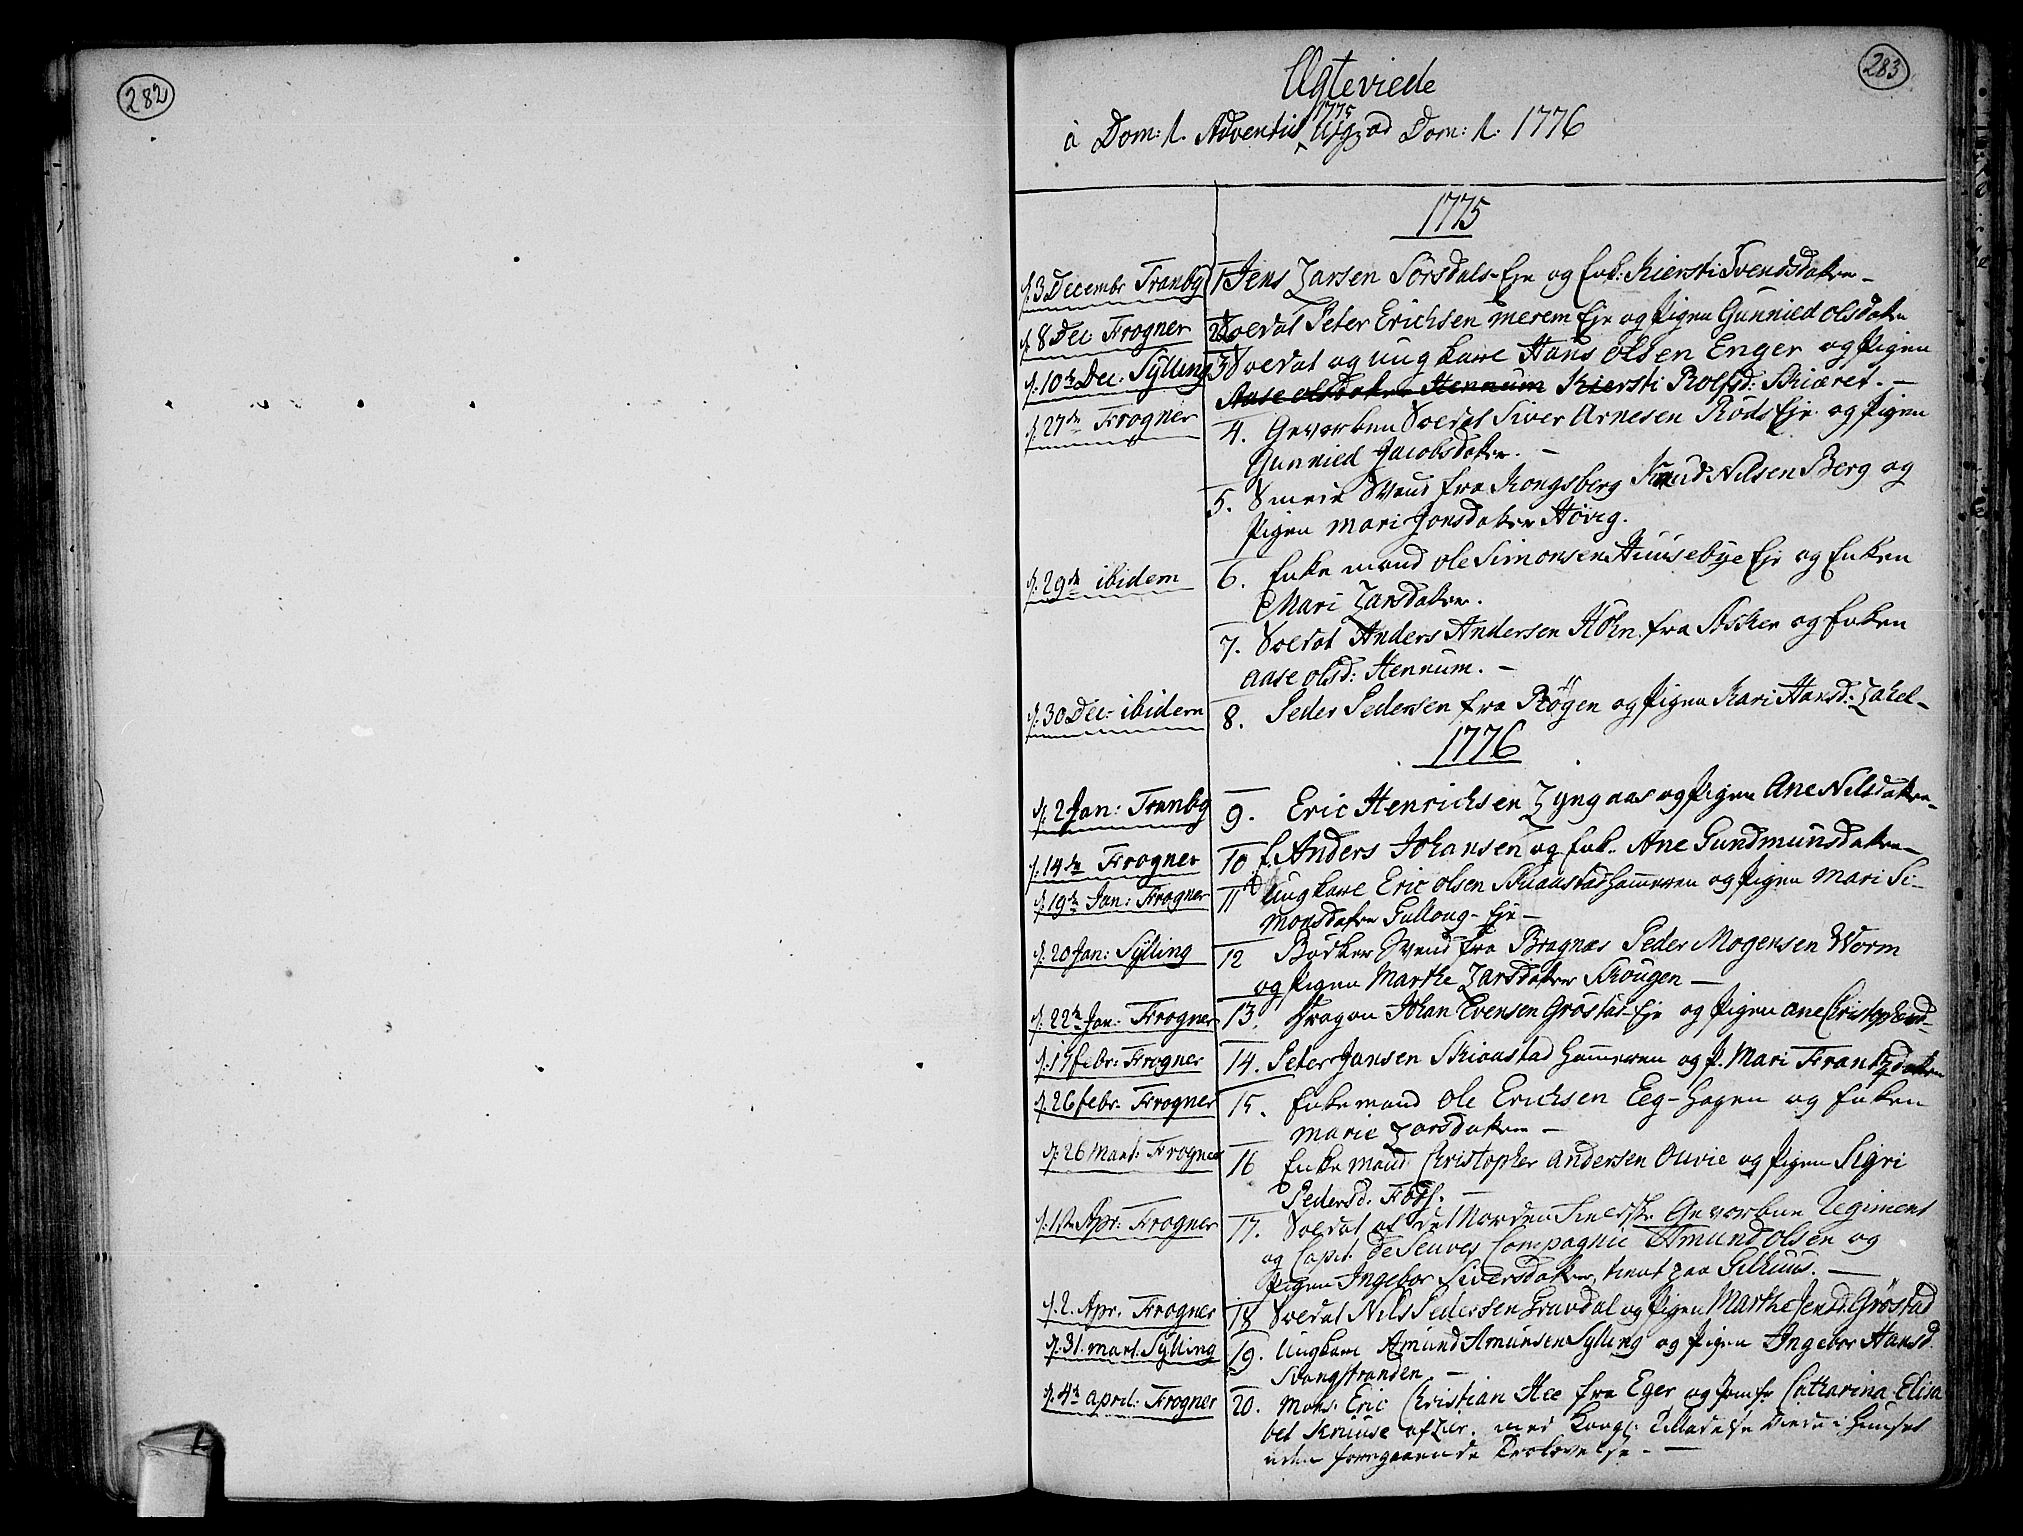 282
283
Ægteviede
à Dom: 1. Adventus 1775 usq; ad Dom: 1. 1776
1775
d. 3 Decembr Tranby 1 Jens Larsen Sørsdals-Eje og Enk: Kiersti Svendsdatter
d. 8 Dec: Frogner 2 Soldat Peter Erichsen Merem Eje og Pigen Gunnild Olsdatter
d. 10de Dec: Sylling 3 Soldat og ungkarl Hans Olsen Enger og Pigen
Aase Olsdatter Hennum Kiersti Rolfsd: Skiæret.
d. 27de Frogner 4. Gevorben Soldat Siver Arnesen Røds Eje og Pigen
Gunnild Jacobsdatter.
5. Smede Svend fra Kongsberg Knud Nilsen Berg og
Pigen Mari Jonsdatter Høvig.
d. 29de ibidem 6. Enkemand Ole Simonsen Huusebye Eje og Enken
Mari Larsdatter.
7. Soldat Anders Andersen Holm fra Asker og Enken
Aase Olsd: Hennum.
d. 30 Dec: ibidem 8. Peder Pedersen fra Røgen og Pigen Kari Hansd:
1776
d. 2 Jan: Tranby 9. Eric Henrichsen Lyngaas og Pigen Ane Nilsdatter
d. 14de Frogner 10 Anders Johansen og Enk. Ane Gundmunsdatter
d. 19de Jan: Frogner 11 Ungkarl Eric Olsen Skiaastad Hammeren og Pigen Mari Si-
monsdatter Gullaug-Eje
d. 20 Jan: Sylling 12 Bødker Svend fra Bragnæs Peder Mogensen Worm
og Pigen Marthe Larsdatter Skougen
d. 22de Jan: Frogner 13. Dragon Johan Evensen Grøstad-Eje og Pigen Ane Christophersd
d. 17 febr: Frogner 14. Peter Jansen Skiaastad Hammeren og P. Mari Frantzdatter
d. 26 febr: Frogner 15. Enkemand Ole Erichsen Eeg-Hagen og Enken
Marie Larsdatter
d. 26 Mart: Frogner 16 Enkemand Christopher Andersen Ouvie og Pigen Sigri
Pedersd: Foss.
d. 1te Apr: Frogner 17. Soldat af det Norden Gevorbne Regiment
og Capit. de Seuves Compagnie Amund Olsen og
Pigen Ingebor Siversdatter, tient paa Gilhuus.
d. 2. Apr. Frogner 18 Soldat Nils Pedersen Gravdal og Pigen Marthe Jensd. Grøstad
d. 31. mart. Sylling 19. Ungkarl Amund Amunsen Sylling og Pigen Ingebor Hansd.
Svangstranden
d. 4de april: Frogner 20. Mons. Eric Christian Hee fra Eger og Jomfr Catharina Elisa
bet Kruuse af Lier. med Kongl: Tilladelse viede i Huuset
uden foregaaende Trolovelse.